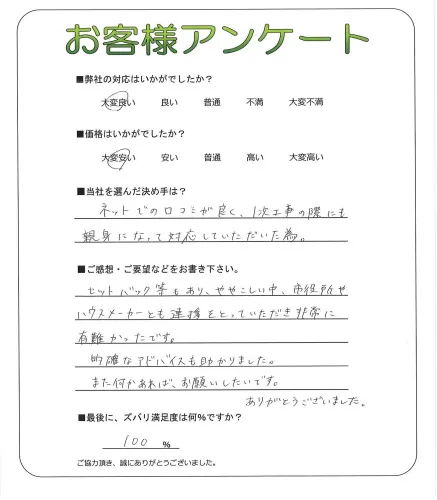 お客様アンケート
■弊社の対応はいかがでしたか？
大変良い 良い 普通 不満 大変不満
■価格はいかがでしたか？
大変安い 安い 普通 高い 大変高い
■当社を選んだ決め手は？
ネットでの口コミが良く、1次工事の際にも
親身になって対応していただいた為。
■ご感想・ご要望などをお書き下さい。
セットバック等もあり、ややこしい中、市役所や
ハウスメーカーとも連携をとっていただき非常に
有難かったです。
的確なアドバイスも助かりました。
また何かあれば、お願いしたいです。
ありがとうございました。
■最後に、ズバリ満足度は何％ですか？
100 ％
ご協力頂き、誠にありがとうございました。